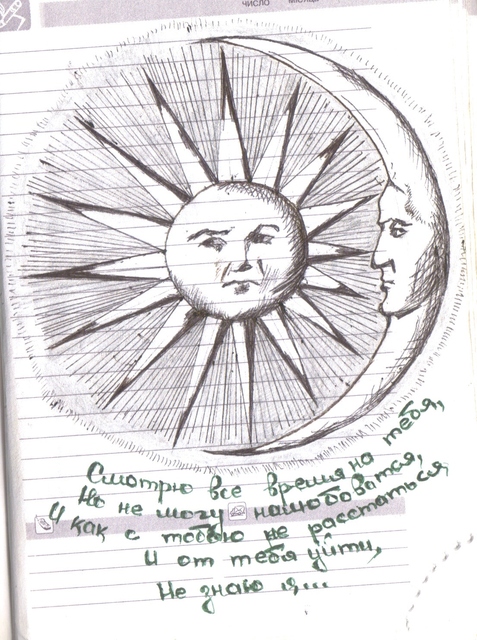 число месяц
Смотрю все время на тебя,
Но не могу налюбоватся,
И как с тобою не расстаться
И от тебя уйти,
Не знаю я...